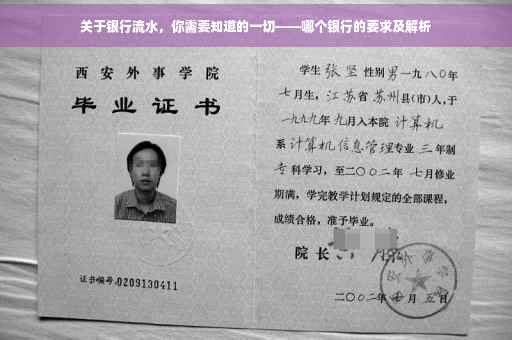 关于银行流水，你需要知道的一切——哪个银行的要求及解析
西安外事学院
毕业证书
证书编号:0209130411
学生 张坚 性别男 一九八〇年
七月生，江苏省 苏州县(市)人,于
一九九九年 九月入本院 计算机
系计算机信息管理专业 三 年制
专科学习，至二〇〇二年 七月修业
期满，学完教学计划规定的全部课程，
成绩合格，准予毕业。
院长
二〇〇二年 月 五日